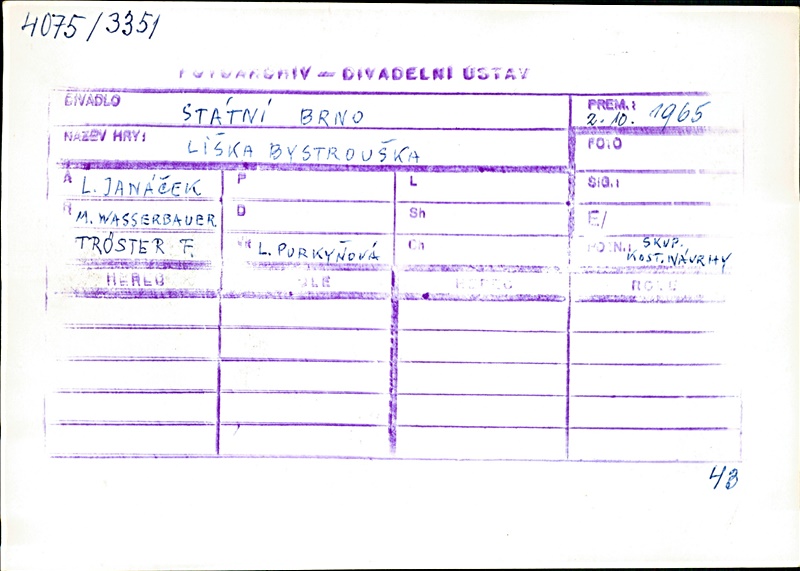 4075/3351
FOTOARCHIV — DIVADELNÍ ÚSTAV
DIVADLO STÁTNÍ BRNO
PREM.: 2.10. 1965
NÁZEV HRY: LIŠKA BYSTROUŠKA
FOTO
A L. JANÁČEK P L SIG.:
R M. WASSERBAUER D Sh E/
TRÖSTER F. L. PURKYŇOVÁ Ch POZN.: SKUP. KOST. NÁVRHY
HEREC ROLE HEREC ROLE
43